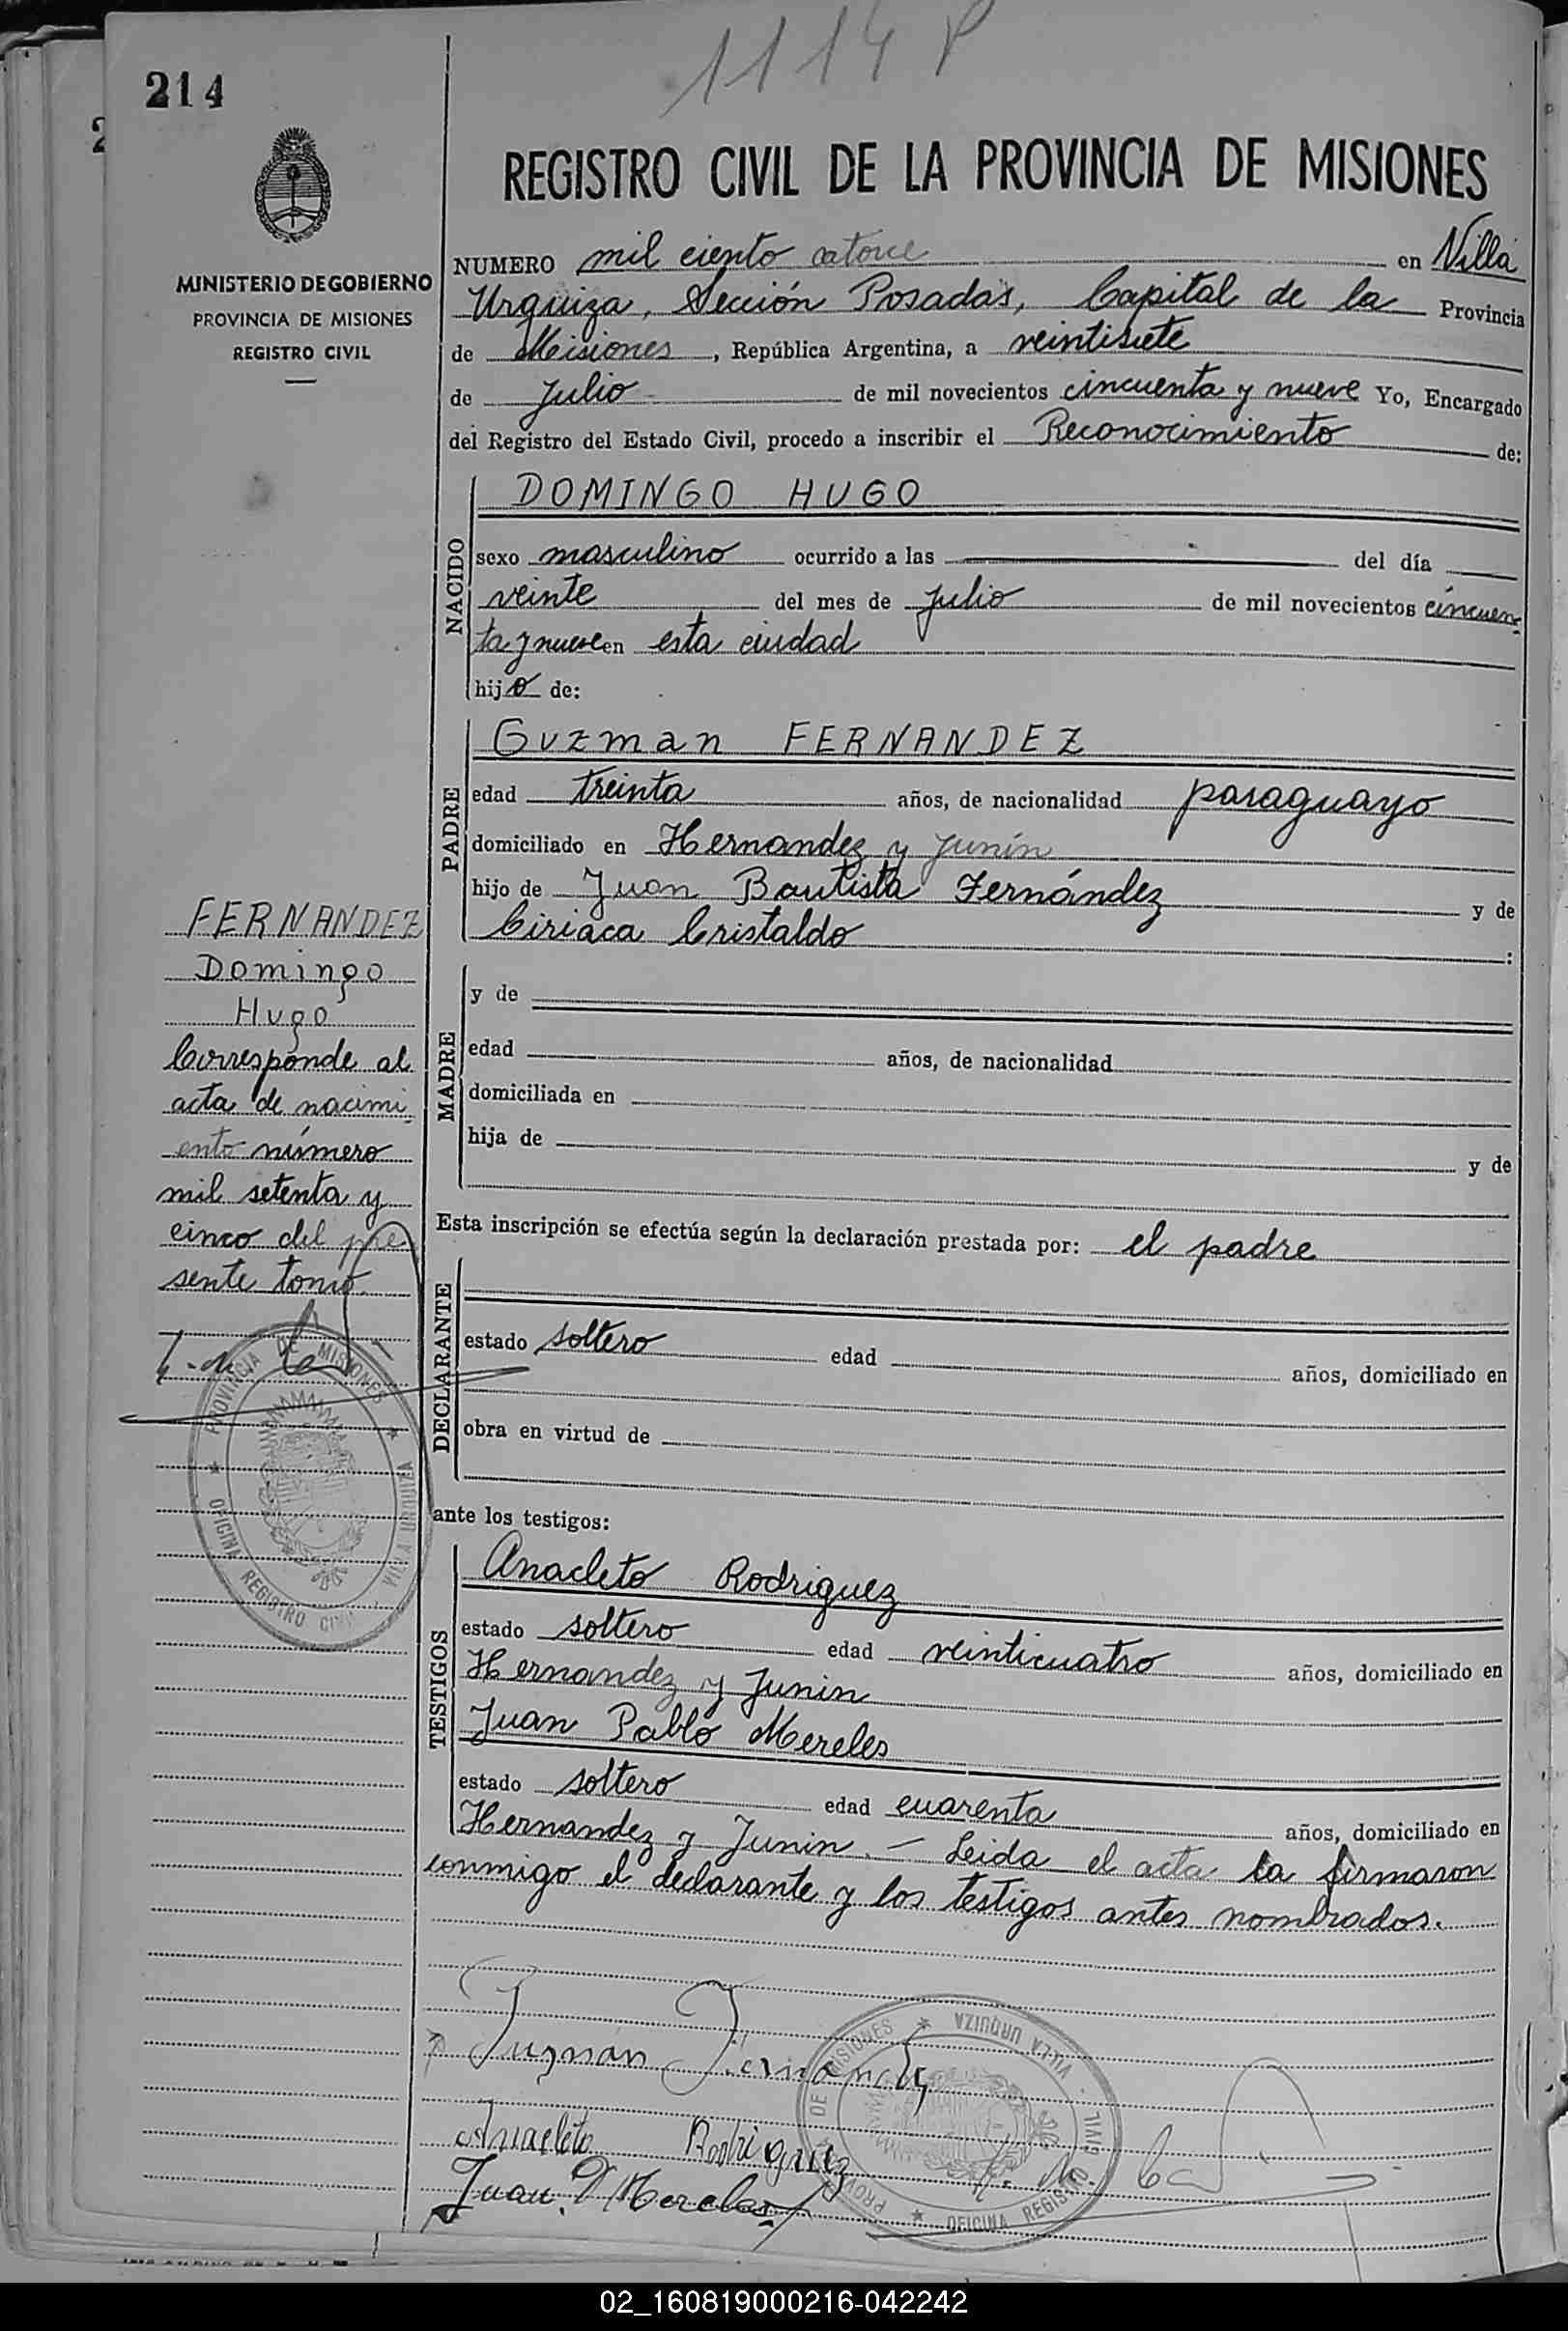 1114 P
214
REGISTRO CIVIL DE LA PROVINCIA DE MISIONES
MINISTERIO DE GOBIERNO
PROVINCIA DE MISIONES
REGISTRO CIVIL
NUMERO mil ciento catorce en Villa
Urquiza, Sección Posadas, Capital de la Provincia
de Misiones, República Argentina, a veintisiete
de Julio de mil novecientos cincuenta y nueve Yo, Encargado
del Registro del Estado Civil, procedo a inscribir el Reconocimiento de:
NACIDO
DOMINGO HUGO
sexo masculino ocurrido a las del día
veinte del mes de Julio de mil novecientos cincuen
ta y nueve en esta ciudad
hijo de:
PADRE
Guzman FERNANDEZ
edad treinta años, de nacionalidad paraguayo
domiciliado en Hernandez y Junín
hijo de Juan Bautista Fernández y de
Ciriaca Cristaldo :
FERNANDEZ
Domingo
Hugo
Corresponde al
acta de nacimi
ento número
mil setenta y
cinco del pre
sente tomo.
MADRE
y de
edad años, de nacionalidad
domiciliada en
hija de y de
Esta inscripción se efectúa según la declaración prestada por: el padre
DECLARANTE
estado soltero edad años, domiciliado en
obra en virtud de
PROVINCIA DE MISIONES ★ VILLA URQUIZA
OFICINA REGISTRO CIVIL ★
ante los testigos:
TESTIGOS
Anacleto Rodriguez
estado soltero edad veinticuatro años, domiciliado en
Hernandez y Junin
Juan Pablo Mereles
estado soltero edad cuarenta años, domiciliado en
Hernandez y Junin. - Leida el acta la firmaron
conmigo el declarante y los testigos antes nombrados.
Guzmán Fernández
Anacleto Rodriguez
Juan P Mereles
PROVINCIA DE MISIONES ★ VILLA URQUIZA
OFICINA REGISTRO CIVIL ★
02_160819000216-042242